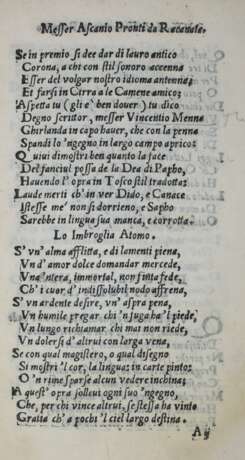 Messer Ascanio Pronti da Recanate.
Se in premio si dee dar di lauro antico
Corona, a chi con stil sonoro accenna
Esser del volgar nostro idioma antenna;
Et farsi in Cirra a le Camene amico;
Aspetta tu (gli e` ben dover) tu dico
Degno scrittor, messer Vincentio Menna
Ghirlanda in capo hauer, che con la penna
Spandi lo 'ngegno in largo campo aprico:
Quiui dimostri ben quanto la face
Del fanciul possa de la Dea di Papho,
Hauendo l'opra in Tosco stil tradotta:
Laude merti ch'in ver Dido, e Canace
Istesse me' non si dorrieno, e Sapho
Sarebbe in lingua sua manca, e corrotta.
Lo Imbroglia Atomo.
S' vn' alma afflitta, e di lamenti piena,
Vn d'amor dolce domandar mercede,
Vna 'ntera, immortal, non finta fede,
Ch'i cuor d'indissolubil nodo affrena,
S' vn ardente desire, vn' aspra pena,
Vn humile pregar chi n'juga ha 'l piede,
Vn lungo richiamar chi mai non riede,
Vn doler si d'altrui con larga vena,
Se con qual magistero, o qual disegno
Si mostri 'l cor, la lingua; in carte pinto;
O 'n rime sparse alcun vedere inchina;
A quest' opra solleui ogni suo 'ngegno,
Che, per chi vince altrui, se stessa ha vinto
Gratia ch' a pochi 'l ciel largo destina.
A ij